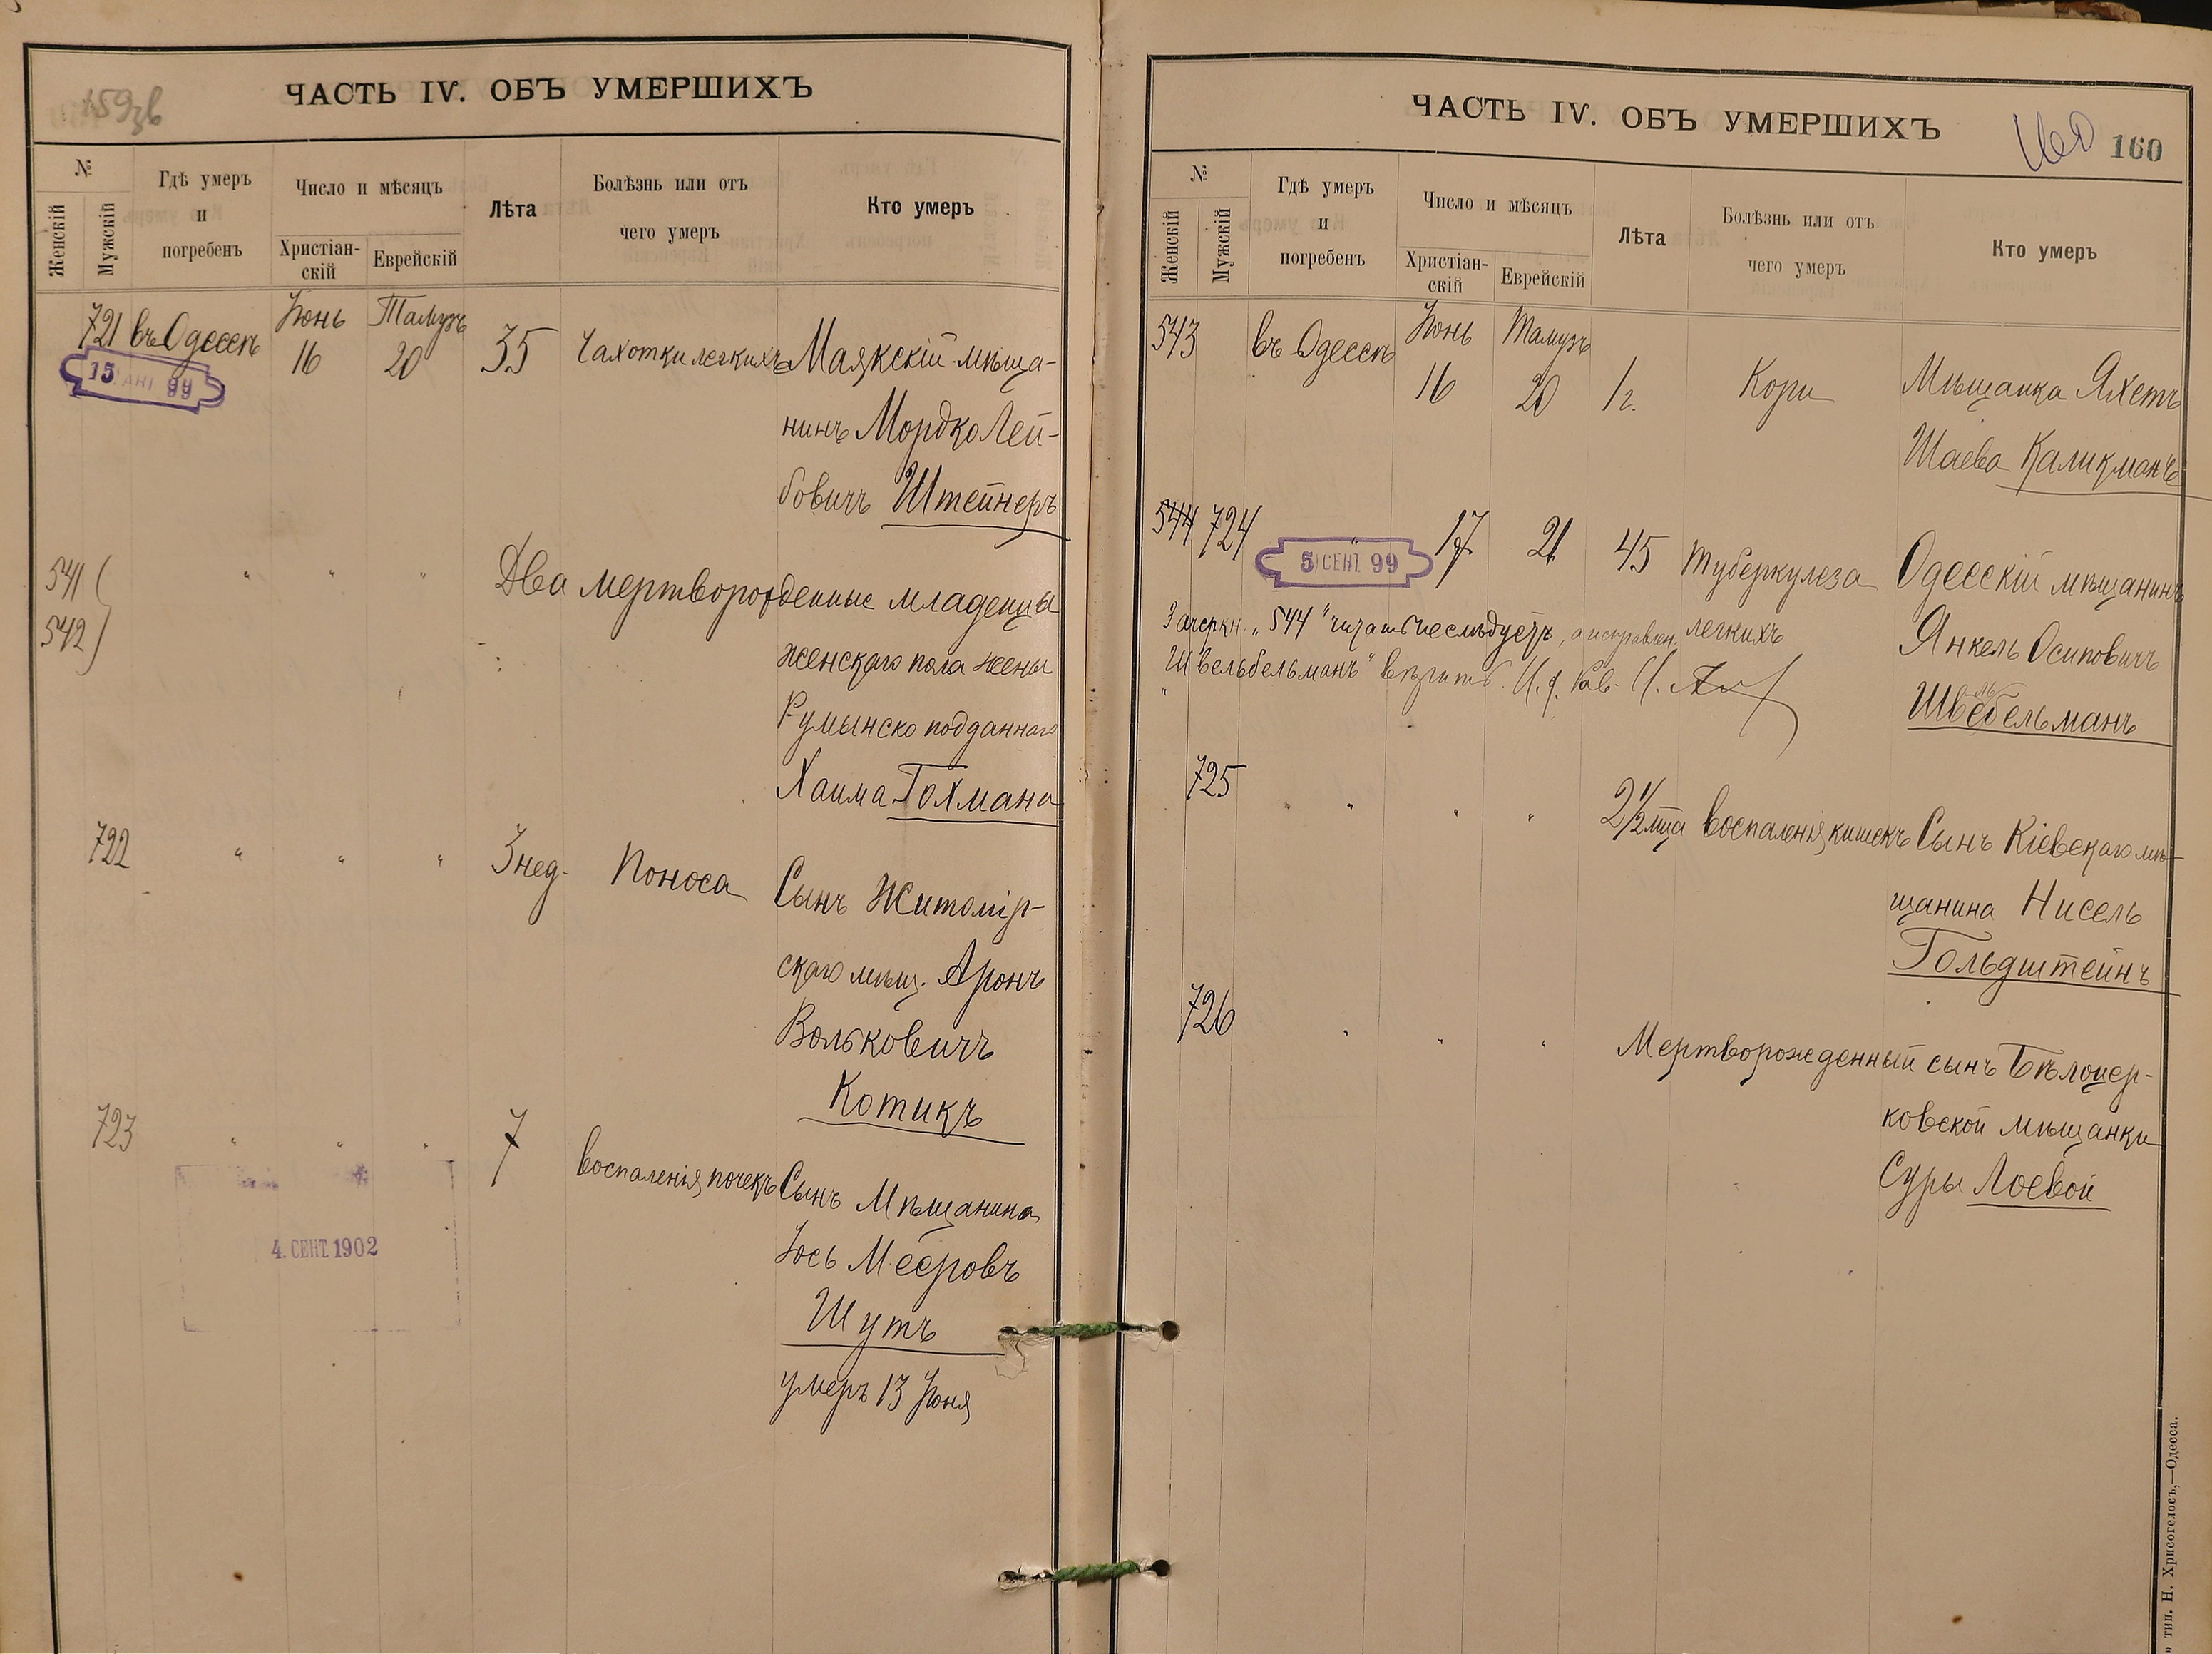 159 зв
ЧАСТЬ IV. ОБЪ УМЕРШИХЪ
№
Женскій
Мужскій
Гдѣ умеръ и погребенъ
Число и мѣсяцъ
Христіан-скій
Еврейскій
Лѣта
Болѣзнь или отъ чего умеръ
Кто умеръ
721 въ Одессѣ Іюнь 16 Тамузъ 20 35 Чахотки легкихъ Маякскій мѣща-
15 АВГ 99
нинъ Мордко Лей-
бовичъ Штейнеръ
541 " " " Два мертворожденные младенцы
542
женскаго пола жены
Румынско подданнаго
Хаима Гохмана
722 " " " 3 нед. Поноса Сынъ Житомір-
скаго мѣщ. Аронъ
Вольковичъ
Котикъ
723 " " " 7 воспаленія почекъ Сынъ Мѣщанина
4. СЕНТ. 1902
Іось Мееровъ
Шутъ
умеръ 13 Іюня
ЧАСТЬ IV. ОБЪ УМЕРШИХЪ
160 160
№
Женскій
Мужскій
Гдѣ умеръ и погребенъ
Число и мѣсяцъ
Христіан-скій
Еврейскій
Лѣта
Болѣзнь или отъ чего умеръ
Кто умеръ
543 въ Одессѣ Іюнь 16 Тамузъ 20 1 г. Кори Мѣщанка Яхетъ
Шаева Каликманъ
544 724 " 17 21 45 Туберкулеза Одесскій мѣщанинъ
5 СЕНТ. 99
легкихъ Янкель Осиповичъ
Швельбельманъ
Зачеркн. „544" читать не слѣдуетъ, а исправлен.
„Швельбельманъ" вѣрить. И. д. Рав.
725 " " " " 2 1/2 мца воспаленія кишекъ Сынъ Кіевскаго мѣ-
щанина Нисель
Гольдштейнъ
726 " " " Мертворожденный сынъ Бѣлоцер-
ковской мѣщанки
Суры Лоевой
тип. Н. Хрисогелосъ,—Одесса.